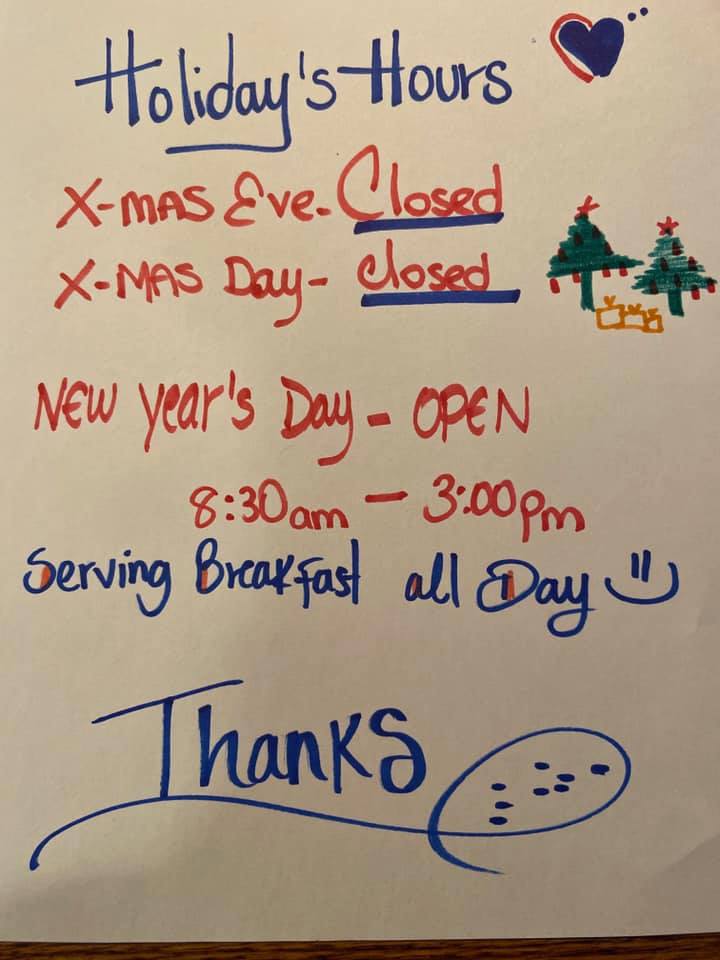 Holiday's Hours
X-MAS Eve- Closed
X-MAS Day- closed
NEW Year's Day - OPEN
8:30am - 3:00pm
Serving Breakfast all Day
Thanks